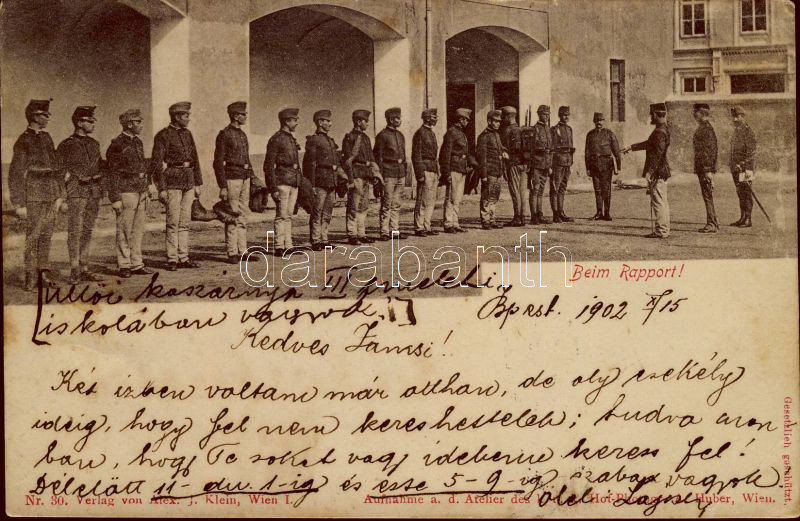 Beim Rapport!
darabanth
[Üllői kaszárnya II emeleti
iskolában vagyok.]
Bpest. 1902 XI/15
Kedves Jancsi!
Két izben voltam már otthon, de oly csekély
ideig, hogy fel nem kereshettelek; tudva azon-
ban, hogy Te sokat vagy idebenn keress fel!
Délelőtt 11-du. 1-ig és este 5-9-ig szabad vagyok.
Ölel
Nr. 30. Verlag von Alex. J. Klein, Wien I.
Aufnahme a. d. Atelier des Hof-Photogr. Huber, Wien.
Gesetzlich geschützt.